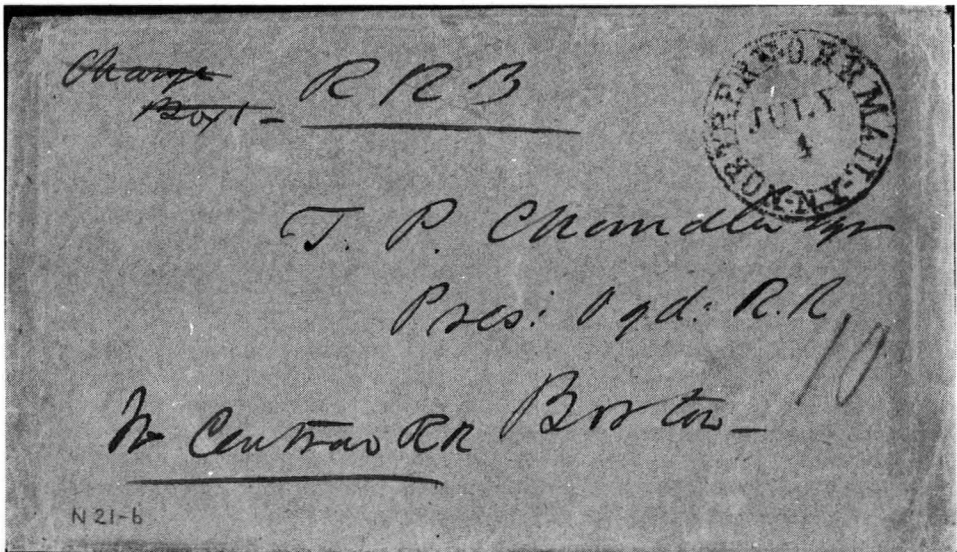 Charge
Box 1 - R R B
NORTHERN-O. R R MAIL. N.Y-N.
JULY
1
T. P. Chandler Esqr
Pres: Ogd: R. R.
10
Central RR Boston -
N 21-b